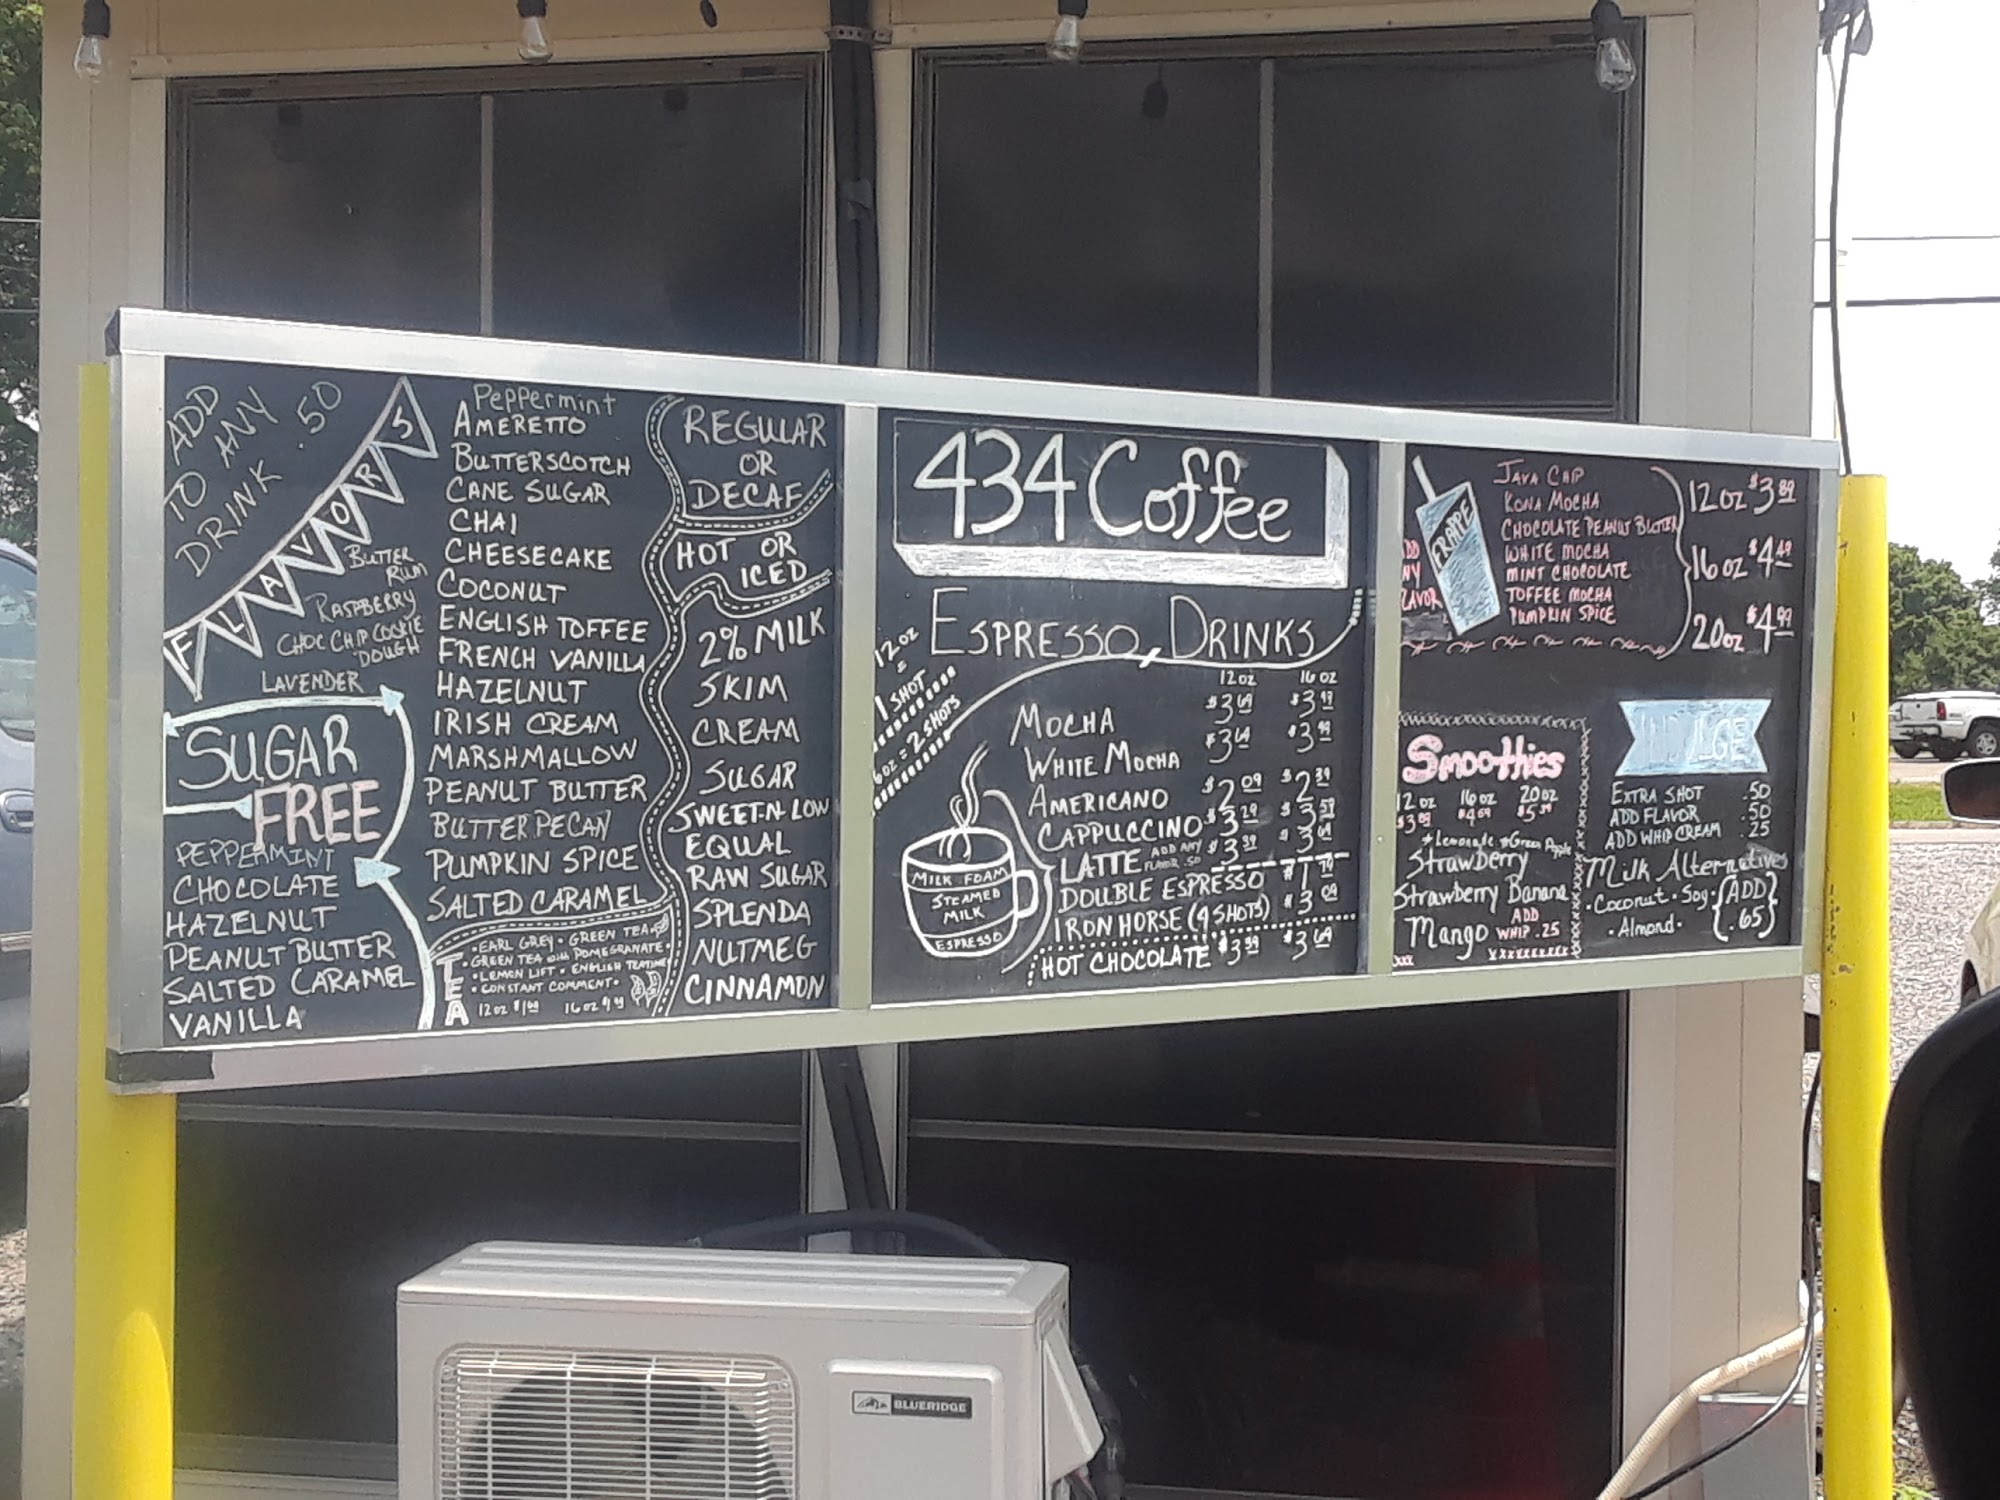 ADD
TO ANY
DRINK .50
FLAVORS
BUTTER
RUM
RASPBERRY
CHOC CHIP COOKIE
DOUGH
LAVENDER
SUGAR
FREE
PEPPERMINT
CHOCOLATE
HAZELNUT
PEANUT BUTTER
SALTED CARAMEL
VANILLA
PEPPERMINT
AMERETTO
BUTTERSCOTCH
CANE SUGAR
CHAI
CHEESECAKE
COCONUT
ENGLISH TOFFEE
FRENCH VANILLA
HAZELNUT
IRISH CREAM
MARSHMALLOW
PEANUT BUTTER
BUTTER PECAN
PUMPKIN SPICE
SALTED CARAMEL
TEA
• EARL GREY • GREEN TEA
• GREEN TEA with POMEGRANATE •
• LEMON LIFT • ENGLISH TEATIME
• CONSTANT COMMENT •
12 oz 16 oz
REGULAR
OR
DECAF
HOT OR
ICED
2% MILK
SKIM
CREAM
SUGAR
SWEET-N LOW
EQUAL
RAW SUGAR
SPLENDA
NUTMEG
CINNAMON
434 Coffee
ESPRESSO DRINKS
12 oz
=
1 SHOT
6oz = 2 SHOTS
12 oz 16 oz
MOCHA $3.69 $3.99
WHITE MOCHA $3.69 $3.99
AMERICANO $2.09 $2.39
CAPPUCCINO $3.29 $3.59
LATTE ADD ANY FLAVOR .50 $3.39 $3.69
DOUBLE ESPRESSO $1.79
IRON HORSE (4 SHOTS) $3.09
HOT CHOCOLATE $3.39 $3.69
MILK FOAM
STEAMED
MILK
ESPRESSO
FRAPPE
DD
NY
LAVOR
JAVA CHIP
KONA MOCHA
CHOCOLATE PEANUT BUTTER
WHITE MOCHA
MINT CHOCOLATE
TOFFEE MOCHA
PUMPKIN SPICE
12 oz $3.89
16 oz $4.49
20 oz $4.99
Smoothies
12 oz 16 oz 20 oz
$3.89 $4.69 $5.39
* Lemonade * Green Apple
Strawberry
Strawberry Banana
Mango ADD WHIP .25
INDULGE
EXTRA SHOT .50
ADD FLAVOR .50
ADD WHIP CREAM .25
Milk Alternatives
• Coconut • Soy •
• Almond •
{ADD .65}
BLUERIDGE